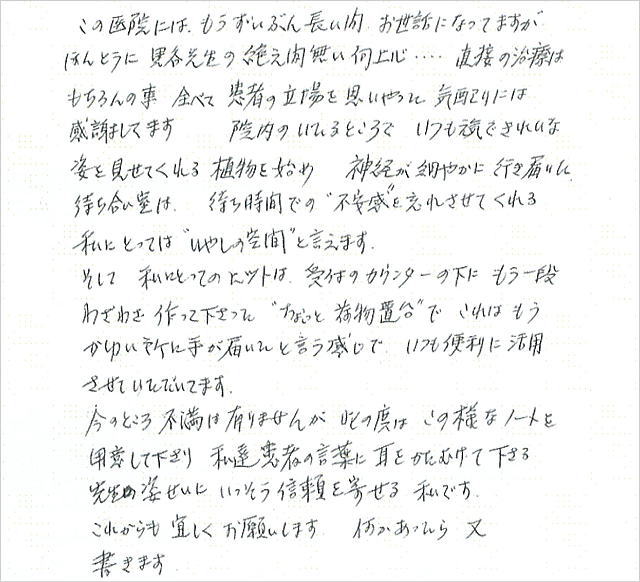 この医院には、もうずいぶん長い間 お世話になってますが
ほんとうに 黒谷先生の 絶え間無い向上心‥‥ 直接の治療は
もちろんの事 全べて 患者の立場を思いやった 気配りには
感謝してます 院内のいたるところで いつも元気できれいな
姿を見せてくれる 植物を始め 神経が細やかに行き届いた
待ち合い室は、 待ち時間での "不安感"を忘れさせてくれる
私にとっては "いやしの空間"と言えます。
そして 私にとってのヒットは、受付のカウンターの下に もう一段
わざわざ 作って下さった "ちょっと 荷物置台"で これは もう
かゆい所に手が届いたと言う感じで、いつも便利に活用
させていただいてます。
今のところ 不満は有りませんが この度は この様なノートを
用意して下さり 私達患者の言葉に耳をかたむけて下さる
先生の姿せいに いっそう信頼を寄せる 私です。
これからも 宜しく お願いします 何かあったら 又
書きます